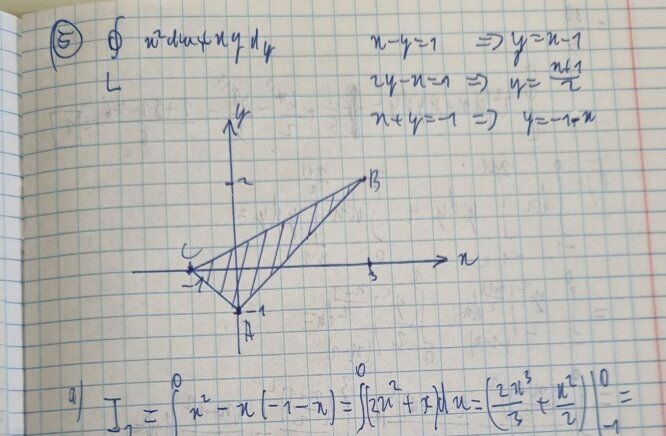 5 ∮ x²dx+xy dy x-y=1 => y=x-1
L 2y-x=1 => y=(x+1)/2
x+y=-1 => y=-1-x
y
2
B
C
x
-1
3
-1
A
a) I₁ = ∫₋₁⁰ x² - x(-1-x) = ∫⁰(2x²+x)dx = (2x³/3 + x²/2)|₋₁⁰ =